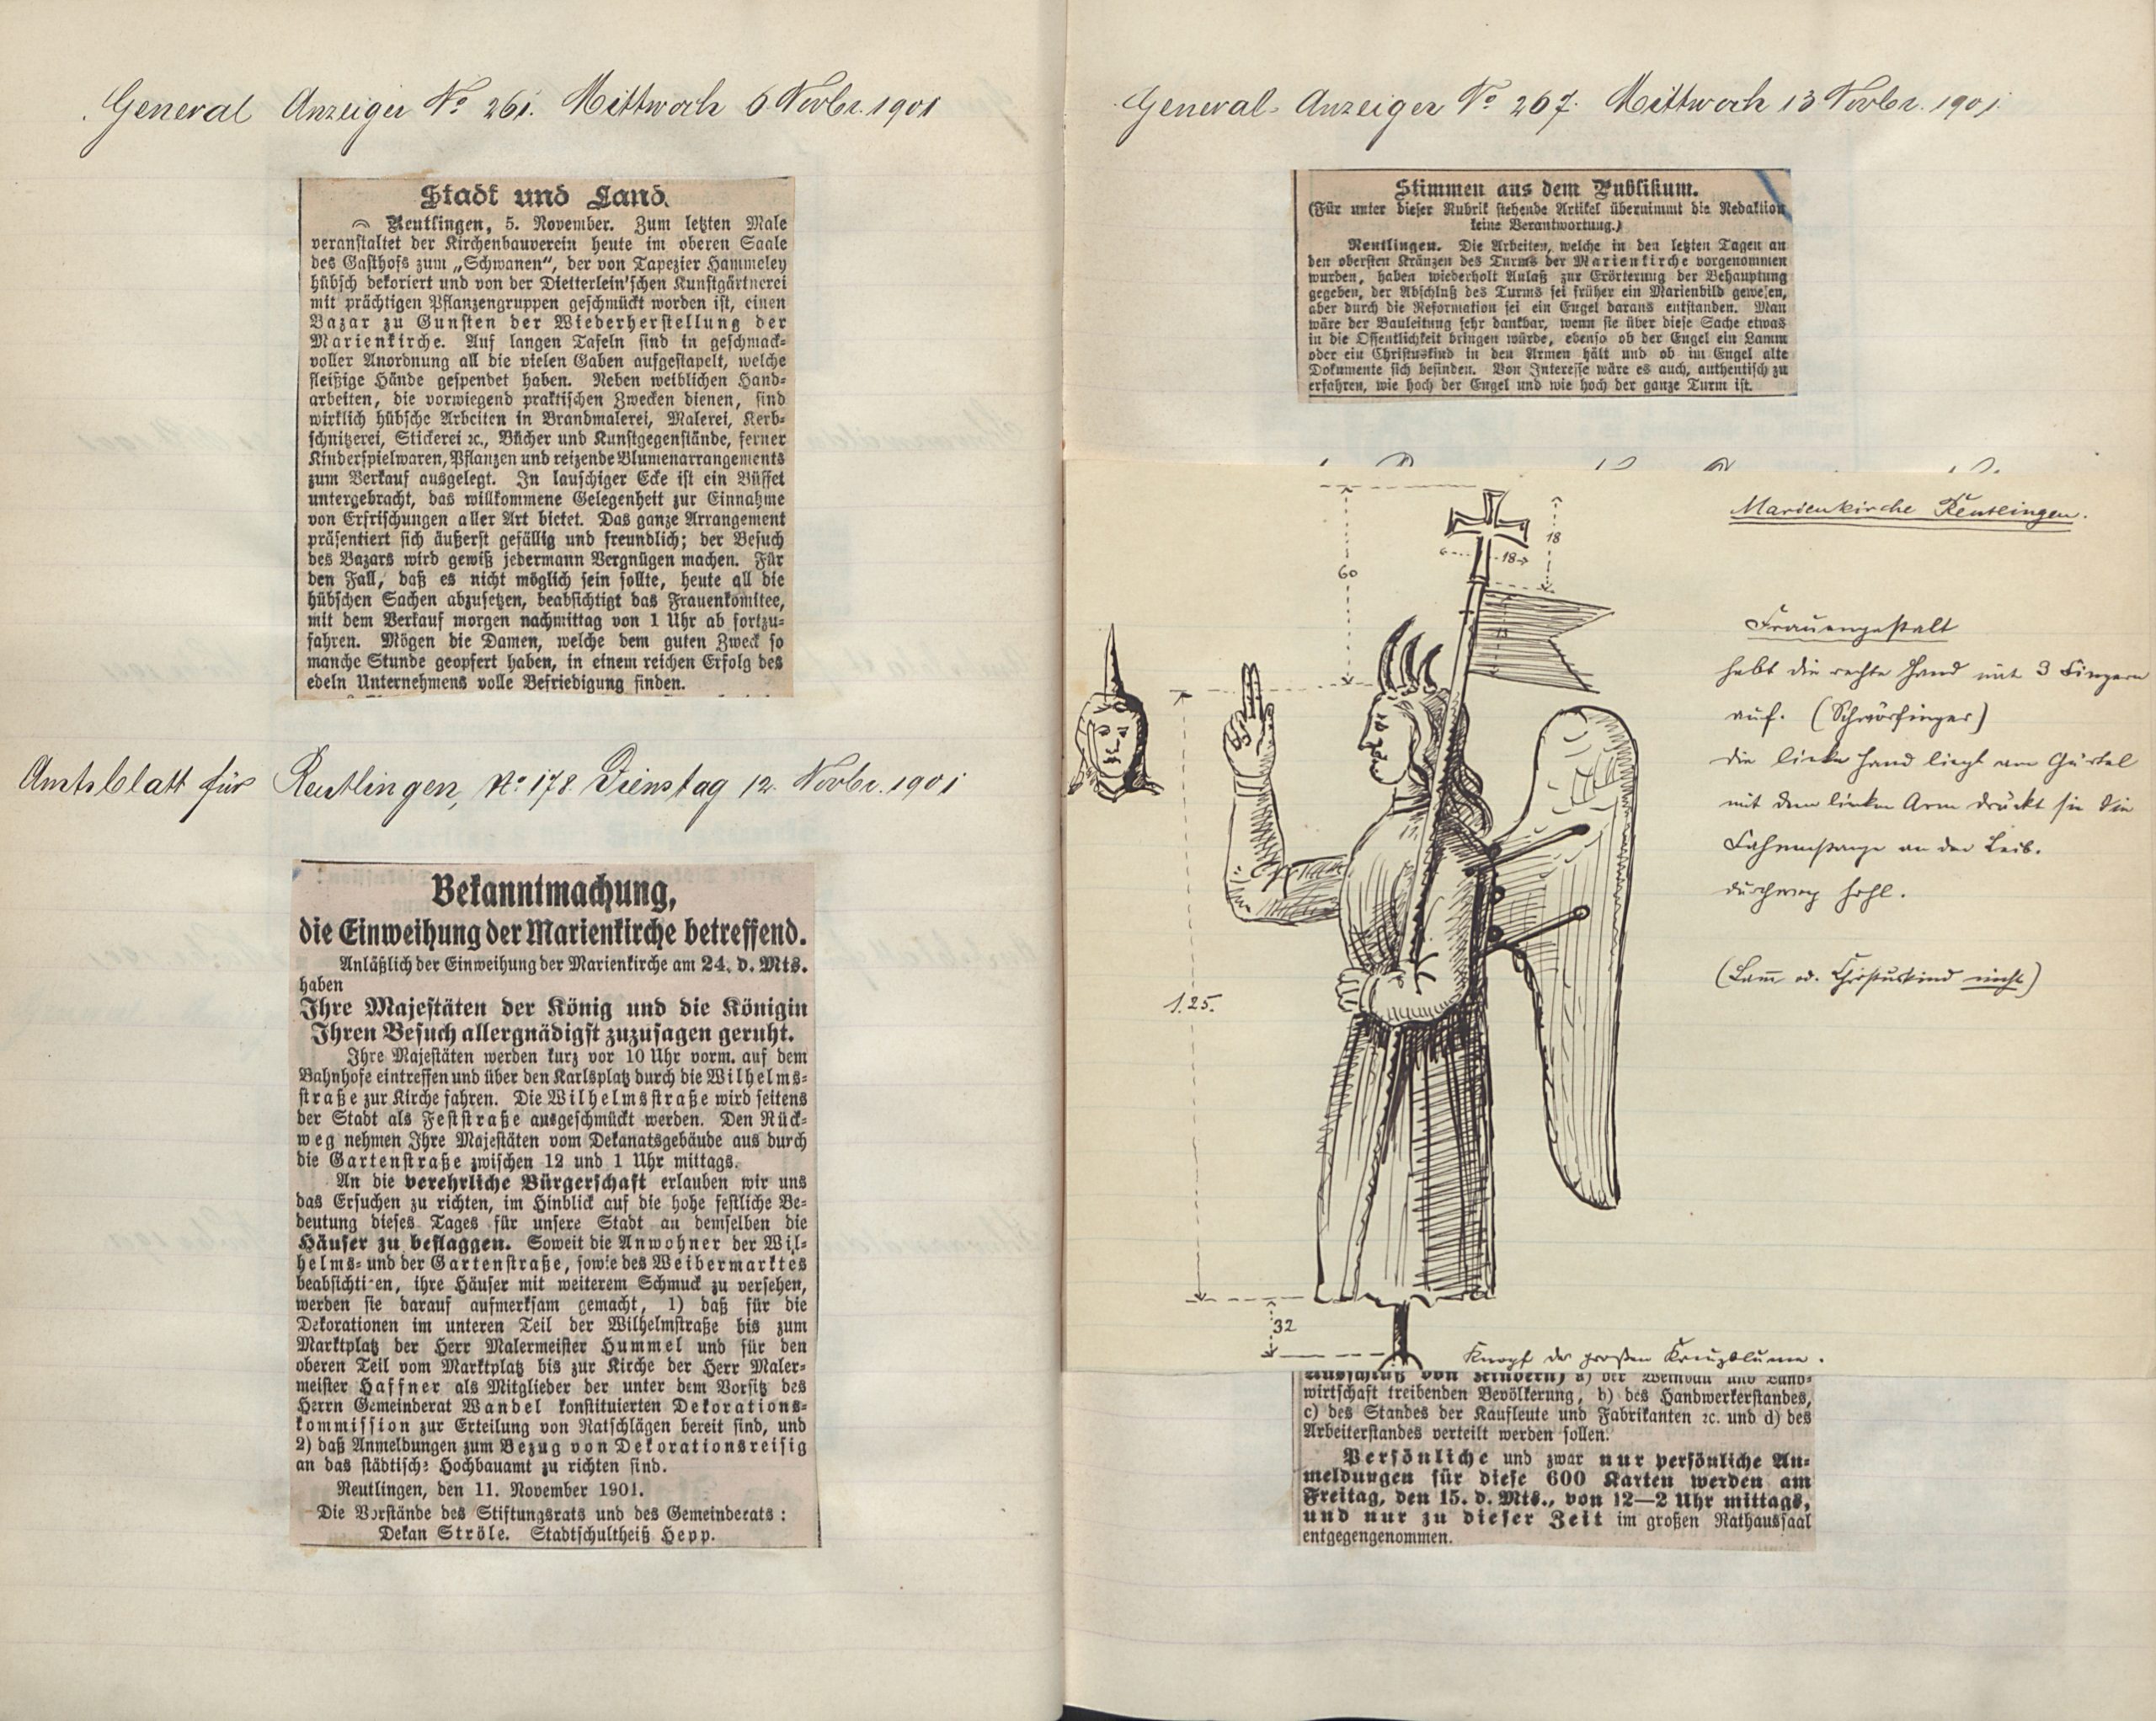 General Anzeiger No 261. Mittwoch 6 Novbr. 1901
Stadt und Land.
Reutlingen, 5. November. Zum letzten Male
veranstaltet der Kirchenbauverein heute im oberen Saale
des Gasthofs zum „Schwanen“, der von Tapezier Hammeley
hübsch dekoriert und von der Dietterlein'schen Kunstgärtnerei
mit prächtigen Pflanzengruppen geschmückt worden ist, einen
Bazar zu Gunsten der Wiederherstellung der
Marienkirche. Auf langen Tafeln sind in geschmack-
voller Anordnung all die vielen Gaben aufgestapelt, welche
fleißige Hände gespendet haben. Neben weiblichen Hand-
arbeiten, die vorwiegend praktischen Zwecken dienen, sind
wirklich hübsche Arbeiten in Brandmalerei, Malerei, Kerb-
schnitzerei, Stickerei ꝛc., Bücher und Kunstgegenstände, ferner
Kinderspielwaren, Pflanzen und reizende Blumenarrangements
zum Verkauf ausgelegt. In lauschiger Ecke ist ein Büffet
untergebracht, das willkommene Gelegenheit zur Einnahme
von Erfrischungen aller Art bietet. Das ganze Arrangement
präsentiert sich äußerst gefällig und freundlich; der Besuch
des Bazars wird gewiß jedermann Vergnügen machen. Für
den Fall, daß es nicht möglich sein sollte, heute all die
hübschen Sachen abzusetzen, beabsichtigt das Frauenkomitee,
mit dem Verkauf morgen nachmittag von 1 Uhr ab fortzu-
fahren. Mögen die Damen, welche dem guten Zweck so
manche Stunde geopfert haben, in einem reichen Erfolg des
edeln Unternehmens volle Befriedigung finden.
Amtsblatt für Reutlingen, No 178 Dienstag 12. Novbr. 1901
Bekanntmachung,
die Einweihung der Marienkirche betreffend.
Anläßlich der Einweihung der Marienkirche am 24. d. Mts.
haben
Ihre Majestäten der König und die Königin
Ihren Besuch allergnädigst zuzusagen geruht.
Ihre Majestäten werden kurz vor 10 Uhr vorm. auf dem
Bahnhofe eintreffen und über den Karlsplatz durch die Wilhelms-
straße zur Kirche fahren. Die Wilhelmsstraße wird seitens
der Stadt als Feststraße ausgeschmückt werden. Den Rück-
weg nehmen Ihre Majestäten vom Dekanatsgebäude aus durch
die Gartenstraße zwischen 12 und 1 Uhr mittags.
An die verehrliche Bürgerschaft erlauben wir uns
das Ersuchen zu richten, im Hinblick auf die hohe festliche Be-
deutung dieses Tages für unsere Stadt an demselben die
Häuser zu beflaggen. Soweit die Anwohner der Wil-
helms- und der Gartenstraße, sowie des Weibermarktes
beabsichtigen, ihre Häuser mit weiterem Schmuck zu versehen,
werden sie darauf aufmerksam gemacht, 1) daß für die
Dekorationen im unteren Teil der Wilhelmstraße bis zum
Marktplatz der Herr Malermeister Hummel und für den
oberen Teil vom Marktplatz bis zur Kirche der Herr Maler-
meister Haffner als Mitglieder der unter dem Vorsitz des
Herrn Gemeinderat Wandel konstituierten Dekorations-
kommission zur Erteilung von Ratschlägen bereit sind, und
2) daß Anmeldungen zum Bezug von Dekorationsreisig
an das städtische Hochbauamt zu richten sind.
Reutlingen, den 11. November 1901.
Die Vorstände des Stiftungsrats und des Gemeinderats:
Dekan Ströle. Stadtschultheiß Hepp.
General-Anzeiger No 267. Mittwoch 13 Novbr. 1901
Stimmen aus dem Publikum.
(Für unter dieser Rubrik stehende Artikel übernimmt die Redaktion
keine Verantwortung.)
Reutlingen. Die Arbeiten, welche in den letzten Tagen an
den obersten Kränzen des Turms der Marienkirche vorgenommen
wurden, haben wiederholt Anlaß zur Erörterung der Behauptung
gegeben, der Abschluß des Turms sei früher ein Marienbild gewesen,
aber durch die Reformation sei ein Engel daraus entstanden. Man
wäre der Bauleitung sehr dankbar, wenn sie über diese Sache etwas
in die Öffentlichkeit bringen würde, ebenso ob der Engel ein Lamm
oder ein Christuskind in den Armen hält und ob im Engel alte
Dokumente sich befinden. Von Interesse wäre es auch, authentisch zu
erfahren, wie hoch der Engel und wie hoch der ganze Turm ist.
Marienkirche Reutlingen.
60
18
18
13
Frauengestalt
hebt die rechte Hand mit 3 Fingern
auf. (Schwörfinger)
die linke Hand liegt am Gürtel
mit dem linken Arm drückt sie die
Fahnenstange an den Leib.
durchweg hohl.
(Lam̅ od. Christuskind nicht)
1.25.
32
Knopf der großen Kreuzblume.
Ausschluß von Kindern) a) der Weinbau und Land-
wirtschaft treibenden Bevölkerung, b) des Handwerkerstandes,
c) des Standes der Kaufleute und Fabrikanten ꝛc. und d) des
Arbeiterstandes verteilt werden sollen.
Persönliche und zwar nur persönliche An-
meldungen für diese 600 Karten werden am
Freitag, den 15. d. Mts., von 12—2 Uhr mittags,
und nur zu dieser Zeit im großen Rathaussaal
entgegengenommen.